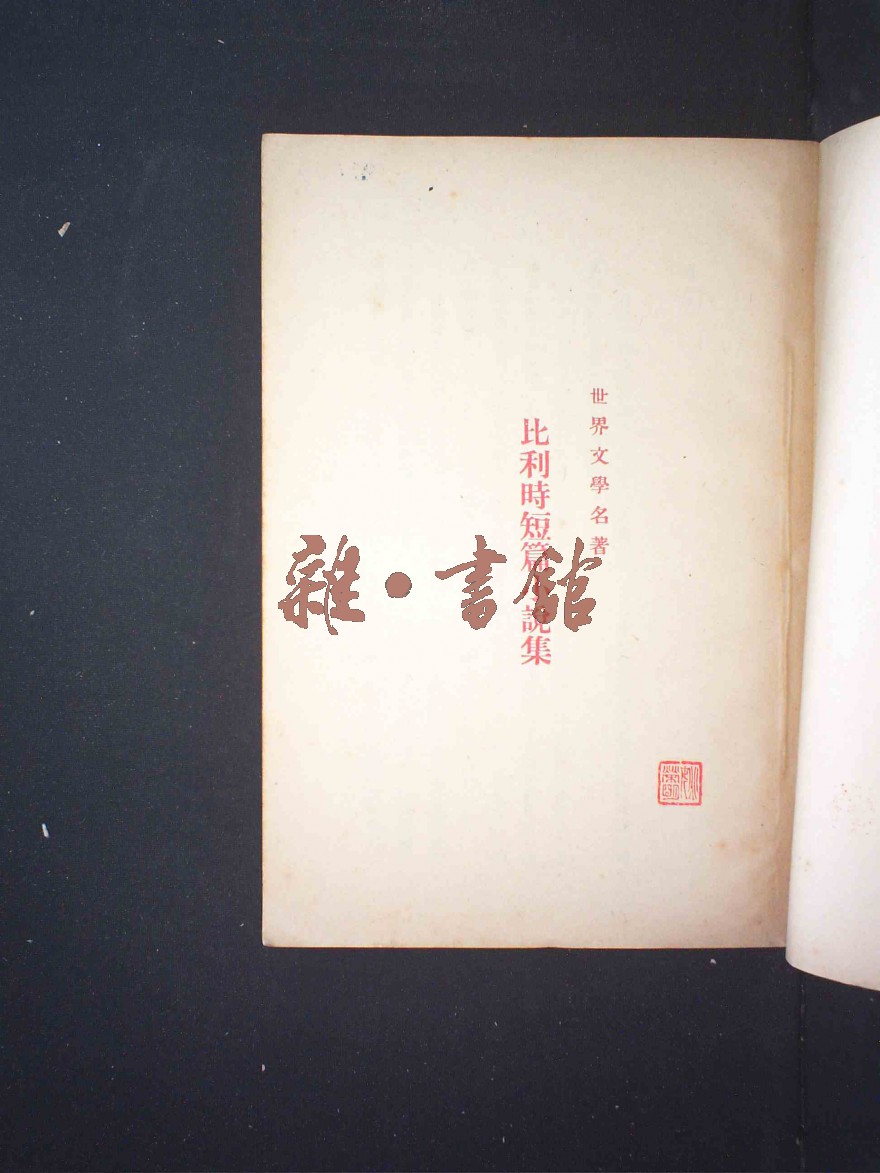 世界文學名著
比利時短篇小說集
雜·書館